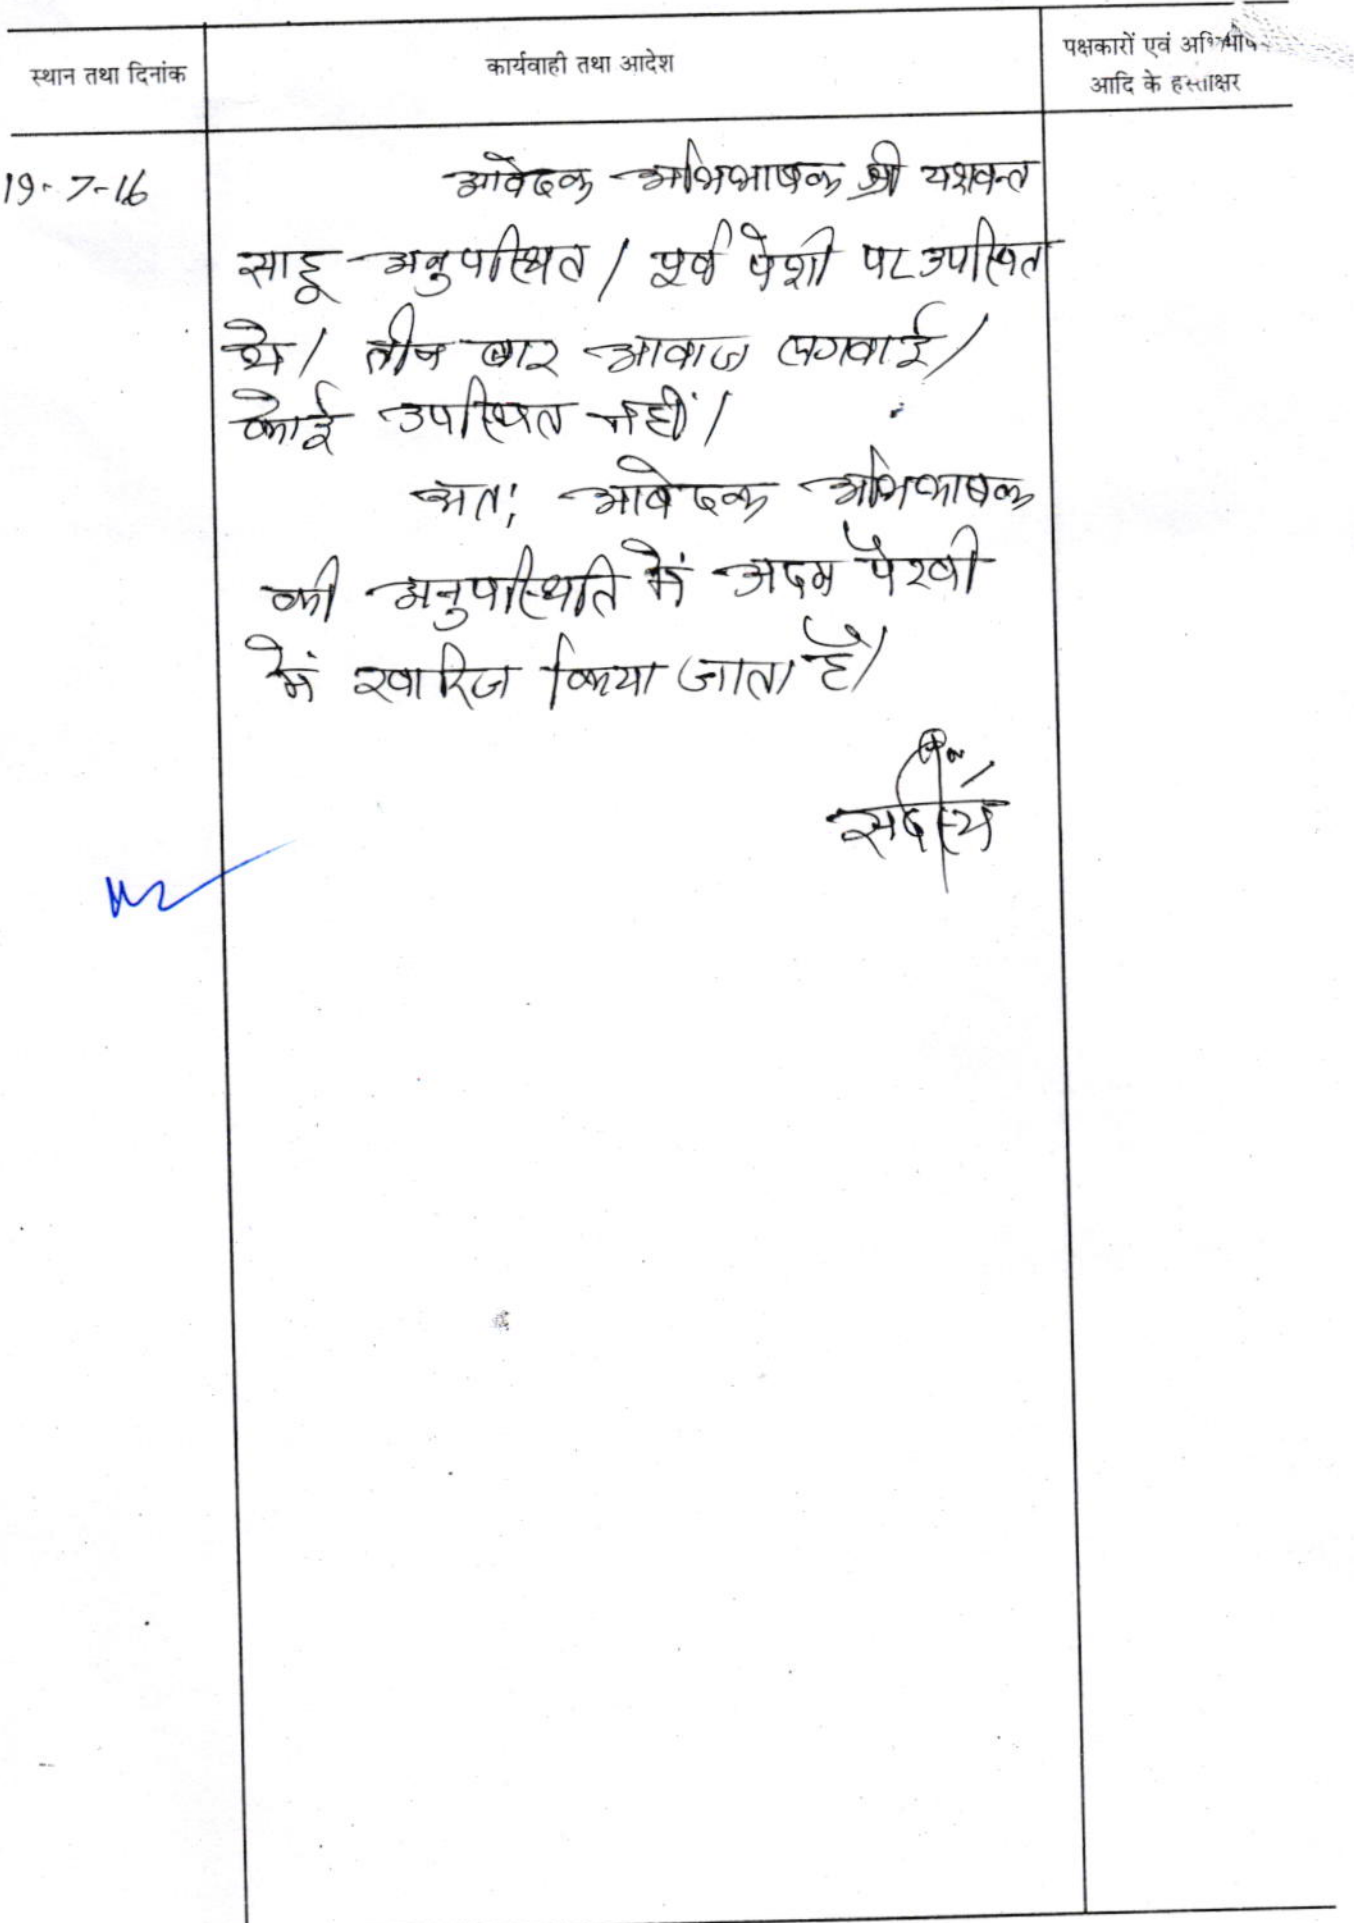 स्थान तथा दिनांक
कार्यवाही तथा आदेश
पक्षकारों एवं
आदि के हस्ताक्षर
19-7-16
आवेदक अभिभाषक श्री यशवन्त
साहू अनुपस्थित / पूर्व पेशी पर उपस्थित
थे / तीन बार आवाज लगवाई /
कोई उपस्थित नहीं /
अतः आवेदक अभिभाषक
की अनुपस्थिति में अदम पैरवी
में खारिज किया जाता है /
सदस्य